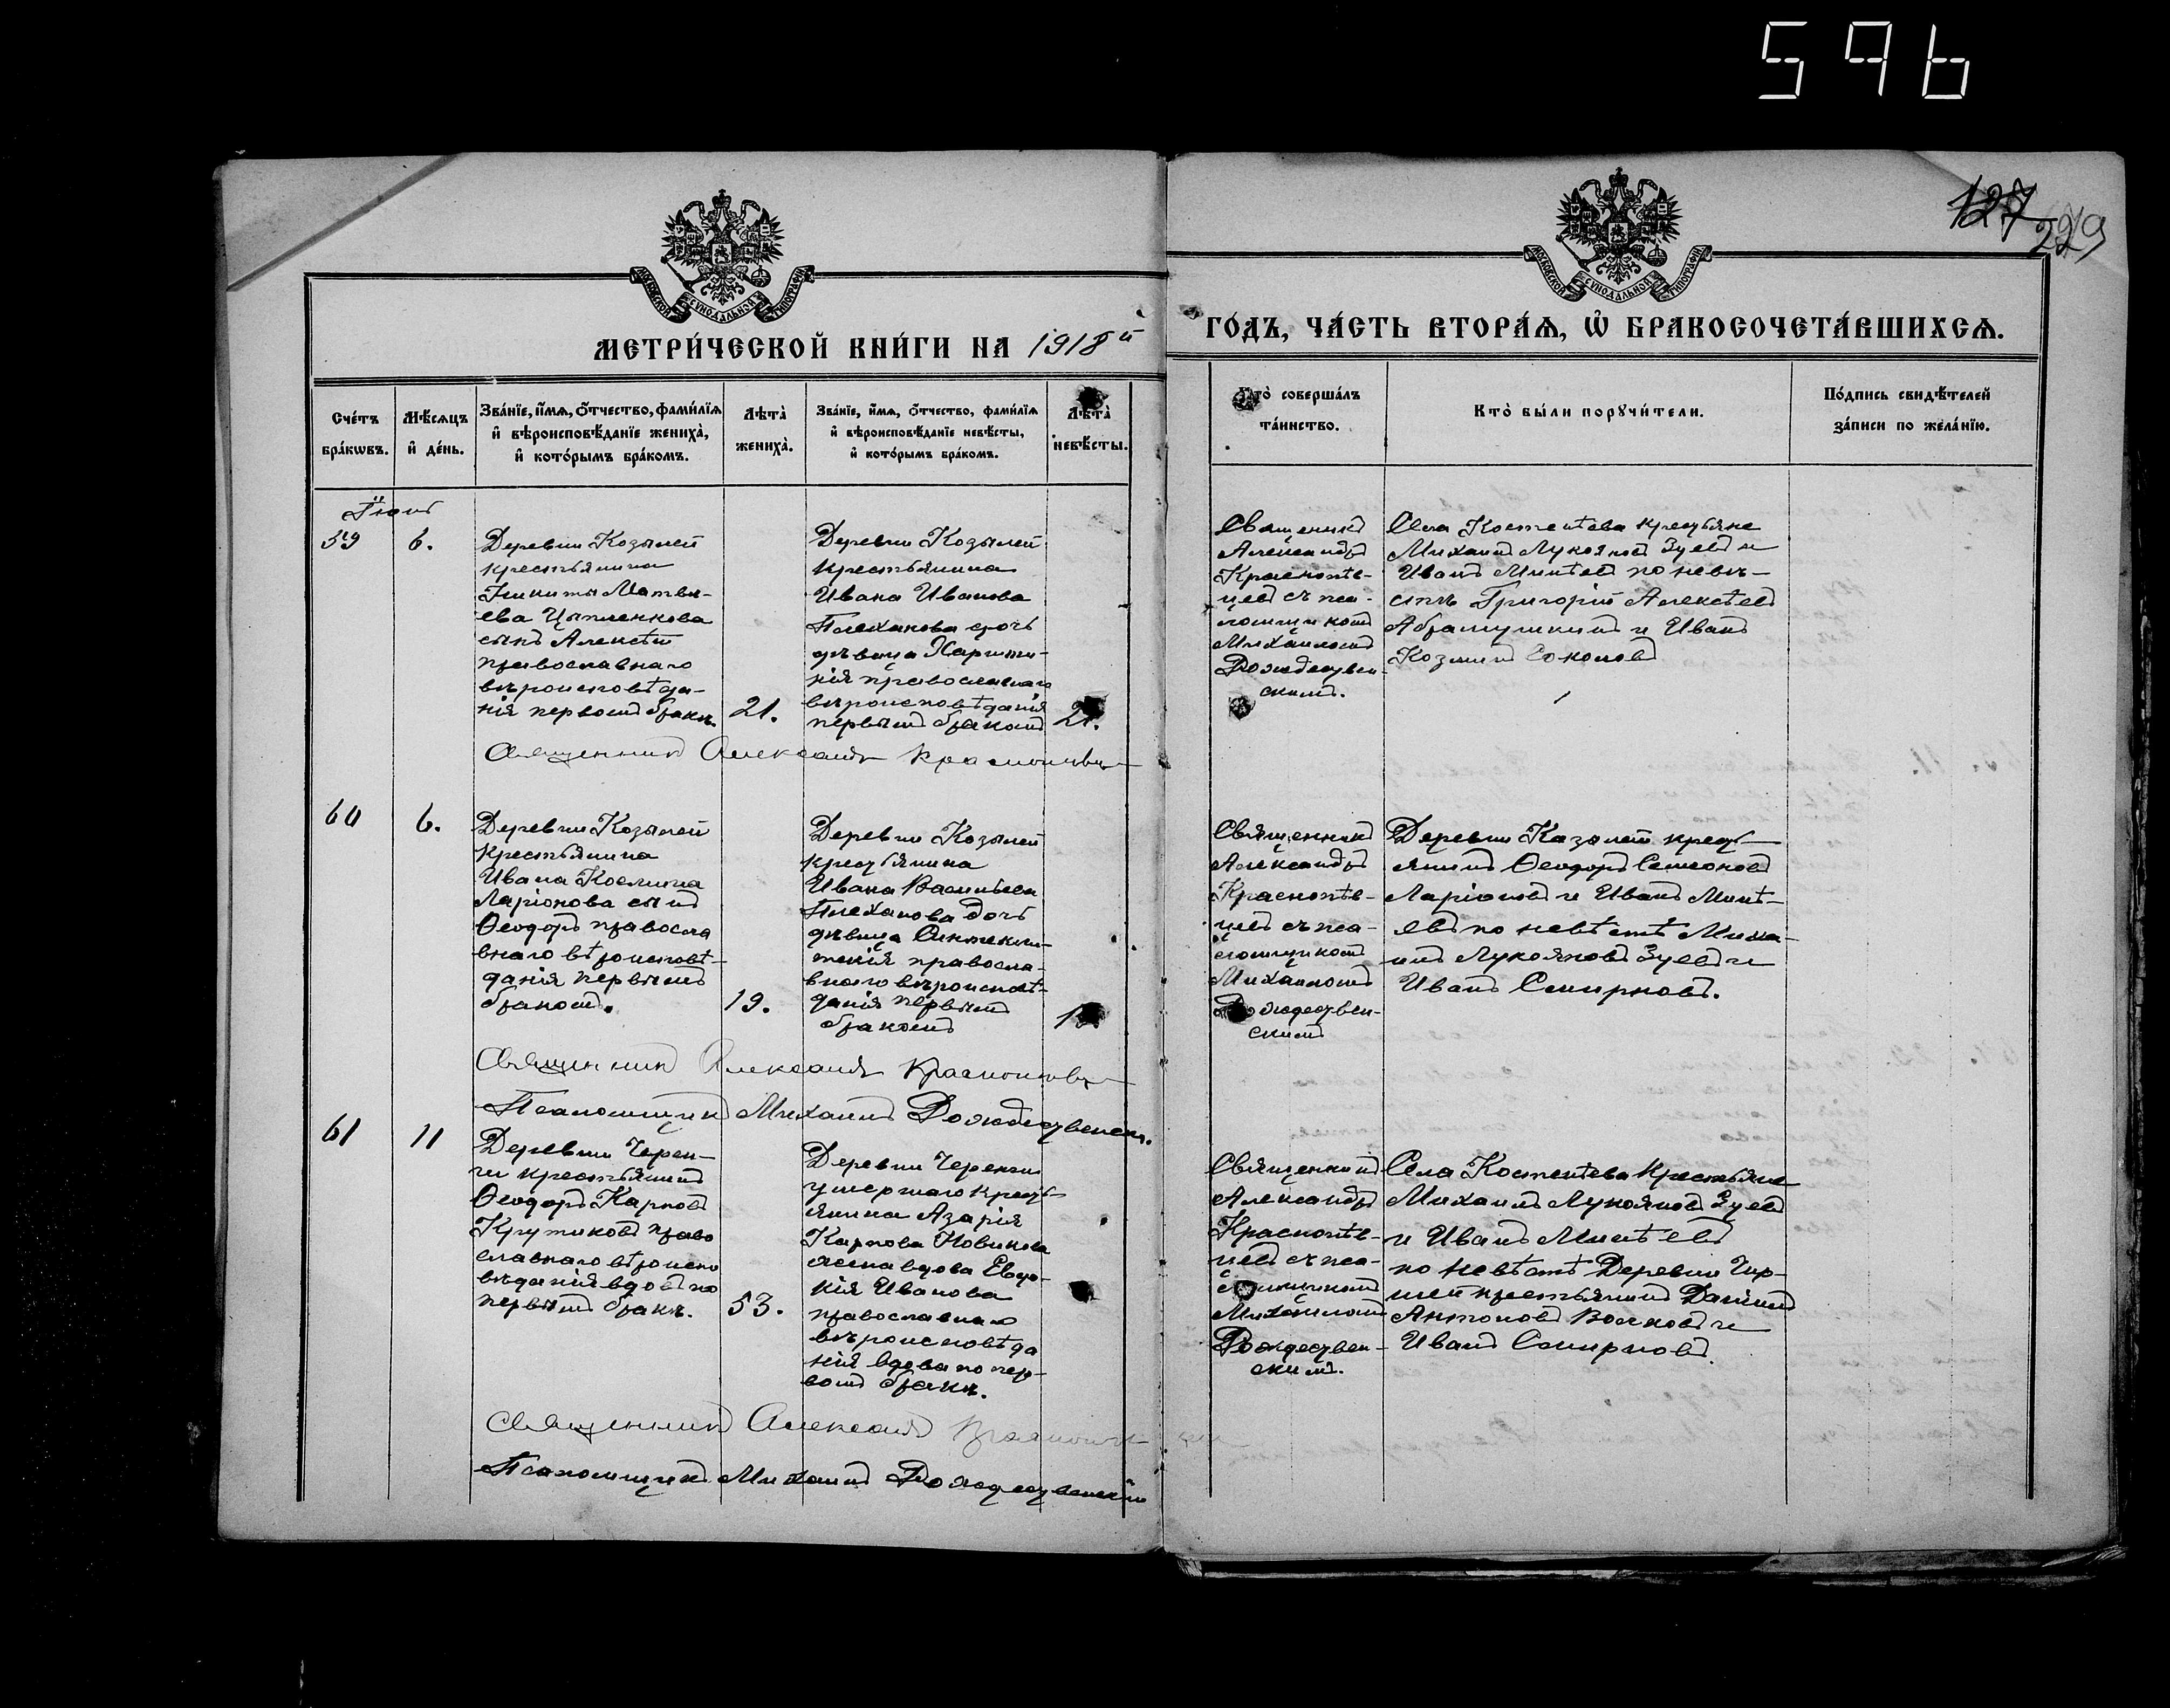 596
127
229
МОСКОВСКОЙ СѴНОДАЛЬНОЙ ТИПОГРАФІИ
МОСКОВСКОЙ СѴНОДАЛЬНОЙ ТИПОГРАФІИ
МЕТРИ́ЧЕСКОЙ КНИ́ГИ НА 1918й
ГО́ДЪ, ЧА́СТЬ ВТОРА́Ѧ, Ѡ҆ БРАКОСОЧЕТА́ВШИХСѦ.
Сче́тъ бра́кѡвъ.
Мѣ́сѧцъ и҆ де́нь.
Зва́нїе, и҆́мѧ, ѻ҆́тчество, фами́лїѧ
и҆ вѣроисповѣ́данїе жениха̀,
и҆ кото́рымъ бра́комъ.
Лѣта̀ жениха̀.
Зва́нїе, и҆́мѧ, ѻ҆́тчество, фами́лїѧ
и҆ вѣроисповѣ́данїе невѣ́сты,
и҆ кото́рымъ бра́комъ.
Лѣта̀ невѣ́сты.
Кто̀ соверша́лъ
та́инство.
Кто̀ бы́ли порꙋчи́тели.
По́дпись свидѣ́телей
за́писи по жела́нїю.
Іюнь
59
6.
Деревни Козылей
крестьянина
Никиты Матвѣ-
ева Цыпленкова
сынъ Алексѣй
православнаго
вѣроисповѣда-
нія первымъ бракъ.
21.
Деревни Козылей
крестьянина
Ивана Иванова
Плеханова дочь
дѣвица Харити-
нія православнаго
вѣроисповѣданія
первымъ бракомъ
Священникъ
Александръ
Краснопѣв-
цевъ съ пса-
ломщикомъ
Михаиломъ
Рождествен-
скимъ.
Села Костенѣева крестьяне
Михаилъ Лукояновъ Зуевъ и
Иванъ Минѣевъ по невѣ-
стѣ Григорій Алексѣевъ
Абрамушкинъ и Иванъ
Козминъ Соколовъ
Священникъ Александръ Краснопѣвцевъ
60
6.
Деревни Козылей
крестьянина
Ивана Космина
Ларіонова сынъ
Ѳеодоръ правосла
внаго вѣроисповѣ-
данія первымъ
бракомъ.
19.
Деревни Козылей
крестьянина
Ивана Васильева
Плеханова дочь
дѣвица
православ-
наго вѣроисповѣ-
данія первымъ
бракомъ
Священникъ
Александръ
Краснопѣв-
цевъ съ пса-
ломщикомъ
Михаиломъ
Рождествен-
скимъ
Деревни Казылей крест-
янинъ Ѳеодоръ Семеновъ
Ларіоновъ и Иванъ Минѣ-
евъ по невѣстѣ Миха-
илъ Лукояновъ Зуевъ и
Иванъ Смирновъ.
Священникъ Александръ Краснопѣвцевъ
Псаломщикъ Михаилъ Рождественскій.
61
11
Деревни Черен-
ги крестьянинъ
Ѳеодоръ Карповъ
Крутиковъ право
славнаго вѣроиспо
вѣданія вдовъ по
первымъ бракъ.
53.
Деревни Черенги
умершаго кресть-
янина Азарія
Карпова Новикова
жена вдова Евдо-
кія Иванова
православнаго
вѣроисповѣда
нія вдова по пер-
вомъ бракѣ.
Священникъ
Александръ
Краснопѣв-
цевъ съ пса-
ломщикомъ
Михаиломъ
Рождествен-
скимъ.
Села Костенѣева крестьяне
Михаилъ Лукояновъ Зуевъ
и Иванъ Минѣевъ
по невѣстѣ Деревни
крестьянинъ Даніилъ
Антоновъ Волковъ и
Иванъ Смирновъ.
Священникъ Александръ Краснопѣвцевъ
Псаломщикъ Михаилъ Рождественскій